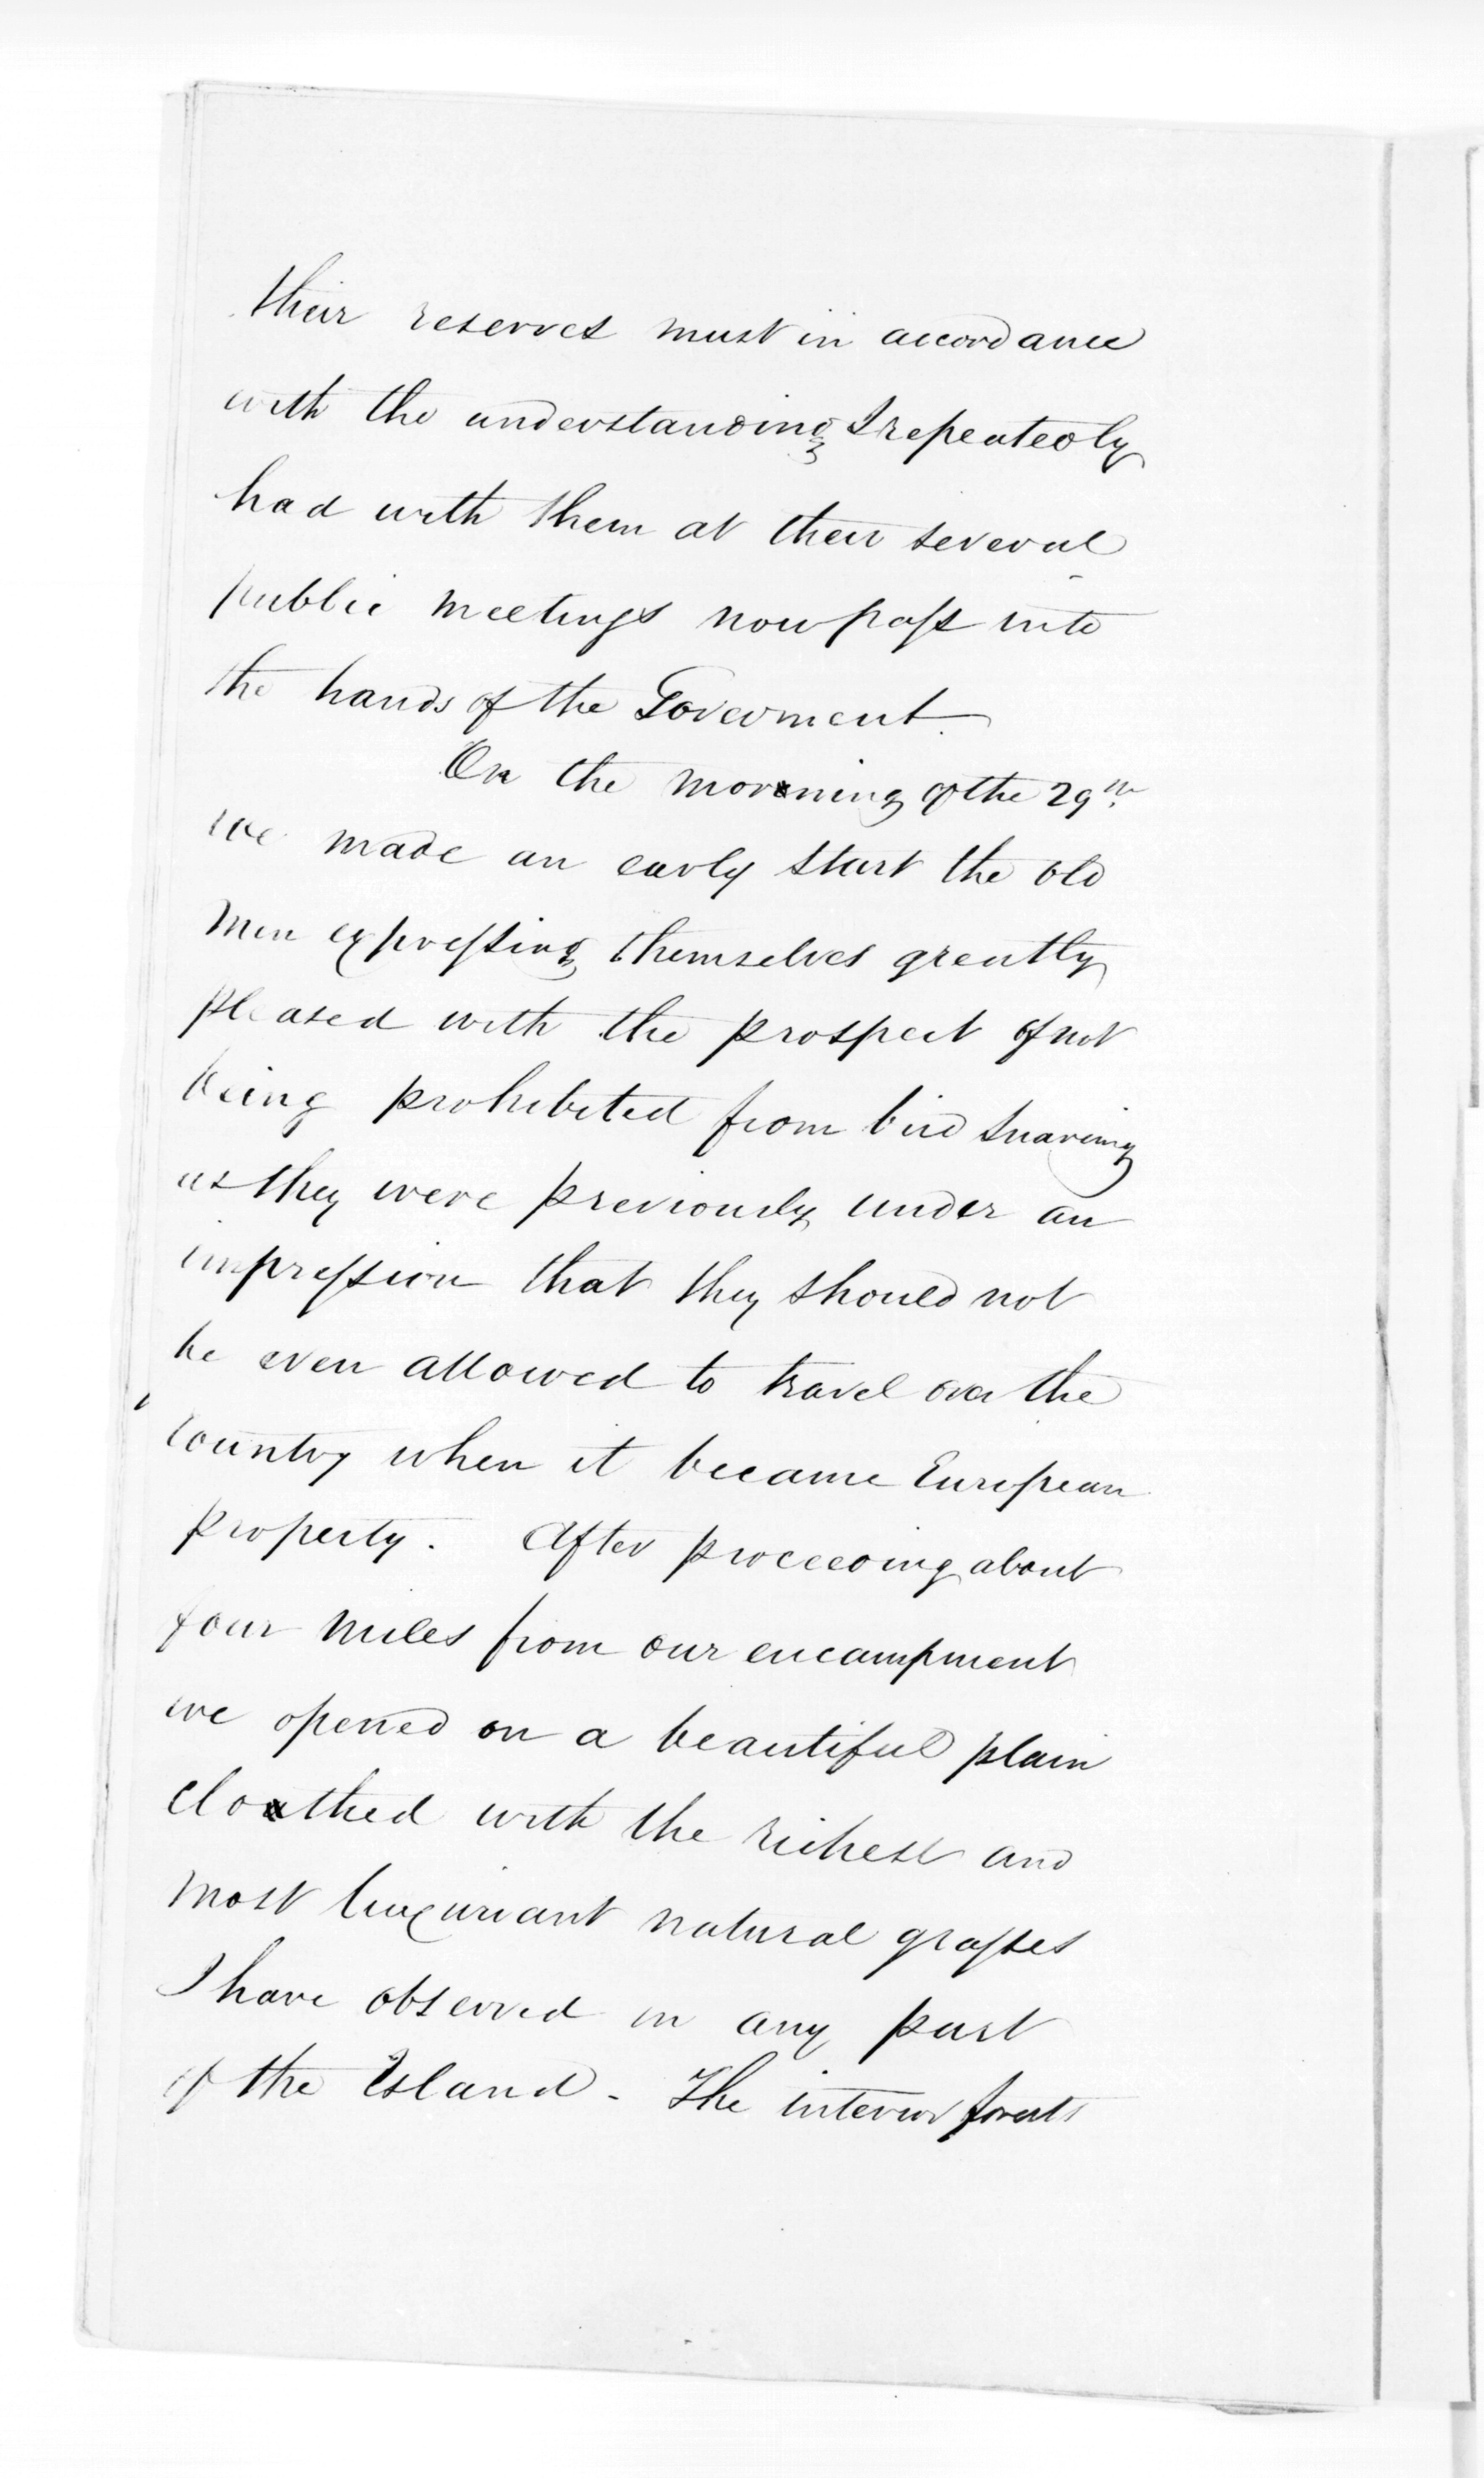 their reserves must in accordance
with the understanding I repeatedly
had with them at their several
public meetings now pass into
the hands of the Goverment.
On the morning of the 29th.
we made an early start the old
men expressing themselves greatly
pleased with the prospect of not
being prohibited from bird snaring
as they were previously under an
impression that they should not
be even allowed to travel over the
country when it became European
property. After proceeding about
four miles from our encampment
we opened on a beautiful plain
cloathed with the richest and
most luxuriant natural grasses
I have observed in any part
of the Island - The interior forests